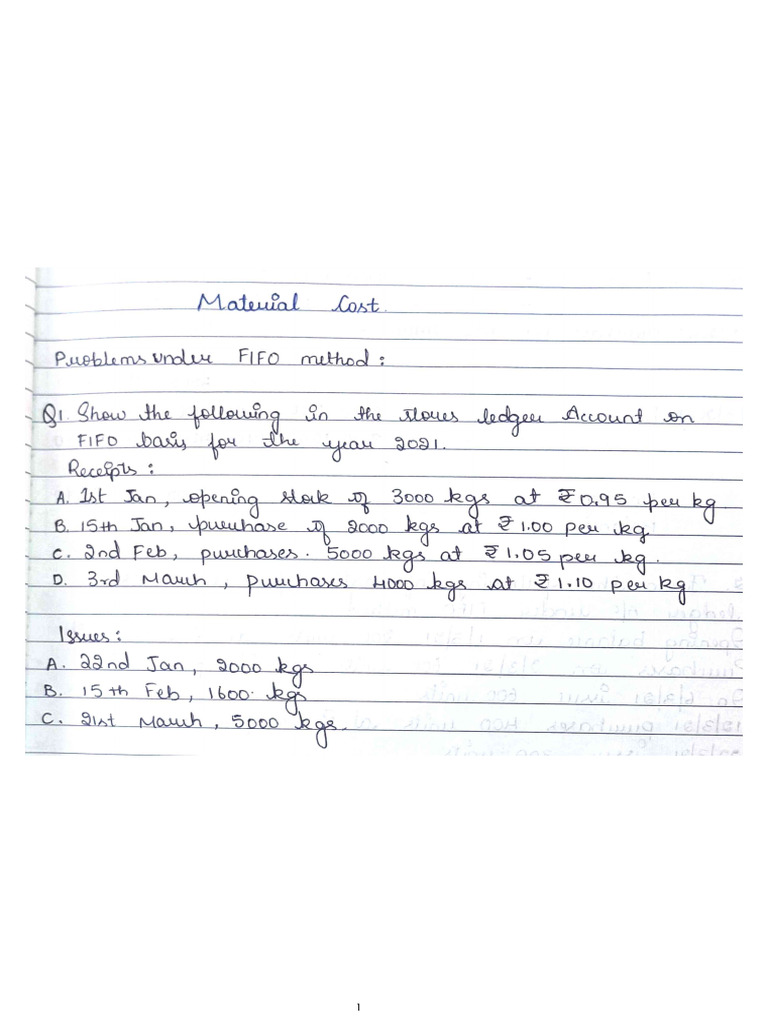 Material Cost.
Problems under FIFO method :
Q1. Show the following in the stores ledger Account on
FIFO basis for the year 2021.
Receipts :
A. 1st Jan, opening stock of 3000 kgs at ₹0.95 per kg.
B. 15th Jan, purchase of 2000 kgs at ₹1.00 per kg
C. 2nd Feb, purchases. 5000 kgs at ₹1.05 per kg.
D. 3rd March, purchases 4000 kgs at ₹1.10 per kg
Issues :
A. 22nd Jan, 2000 kgs
B. 15th Feb, 1600 kgs
C. 21st March, 5000 kgs.
1